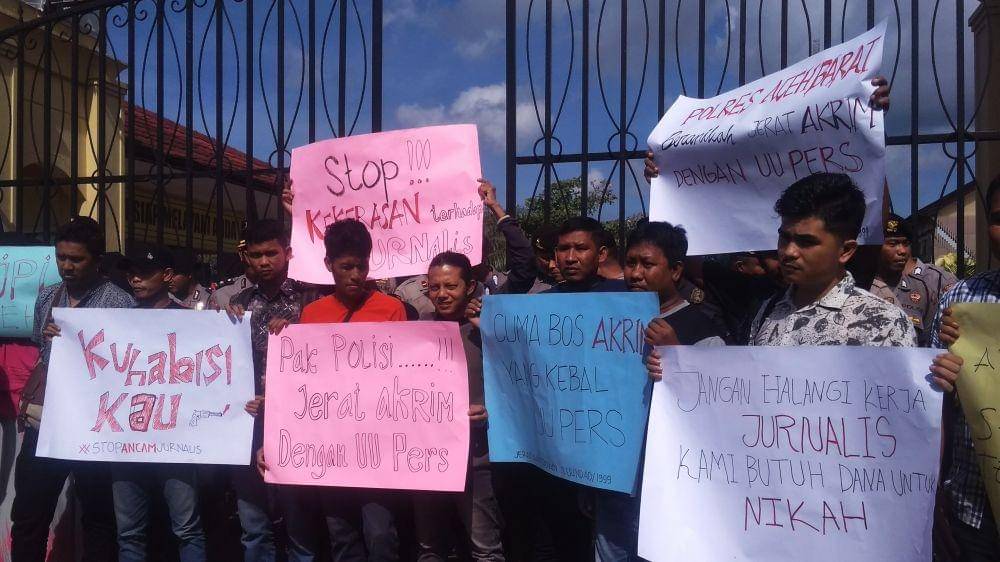 Stop !!!
KEKERASAN terhadap
JURNALIS
POLRES ACEH BARAT
JERAT AKRIM
DENGAN UU PERS
Kuhabisi
Kau
#STOPANCAMJURNALIS
Pak Polisi......!!!
Jerat AKRIM
Dengan UU Pers
CUMA BOS AKRIM
YANG KEBAL
UU PERS
JANGAN HALANGI KERJA
JURNALIS
KAMI BUTUH DANA UNTUK
NIKAH